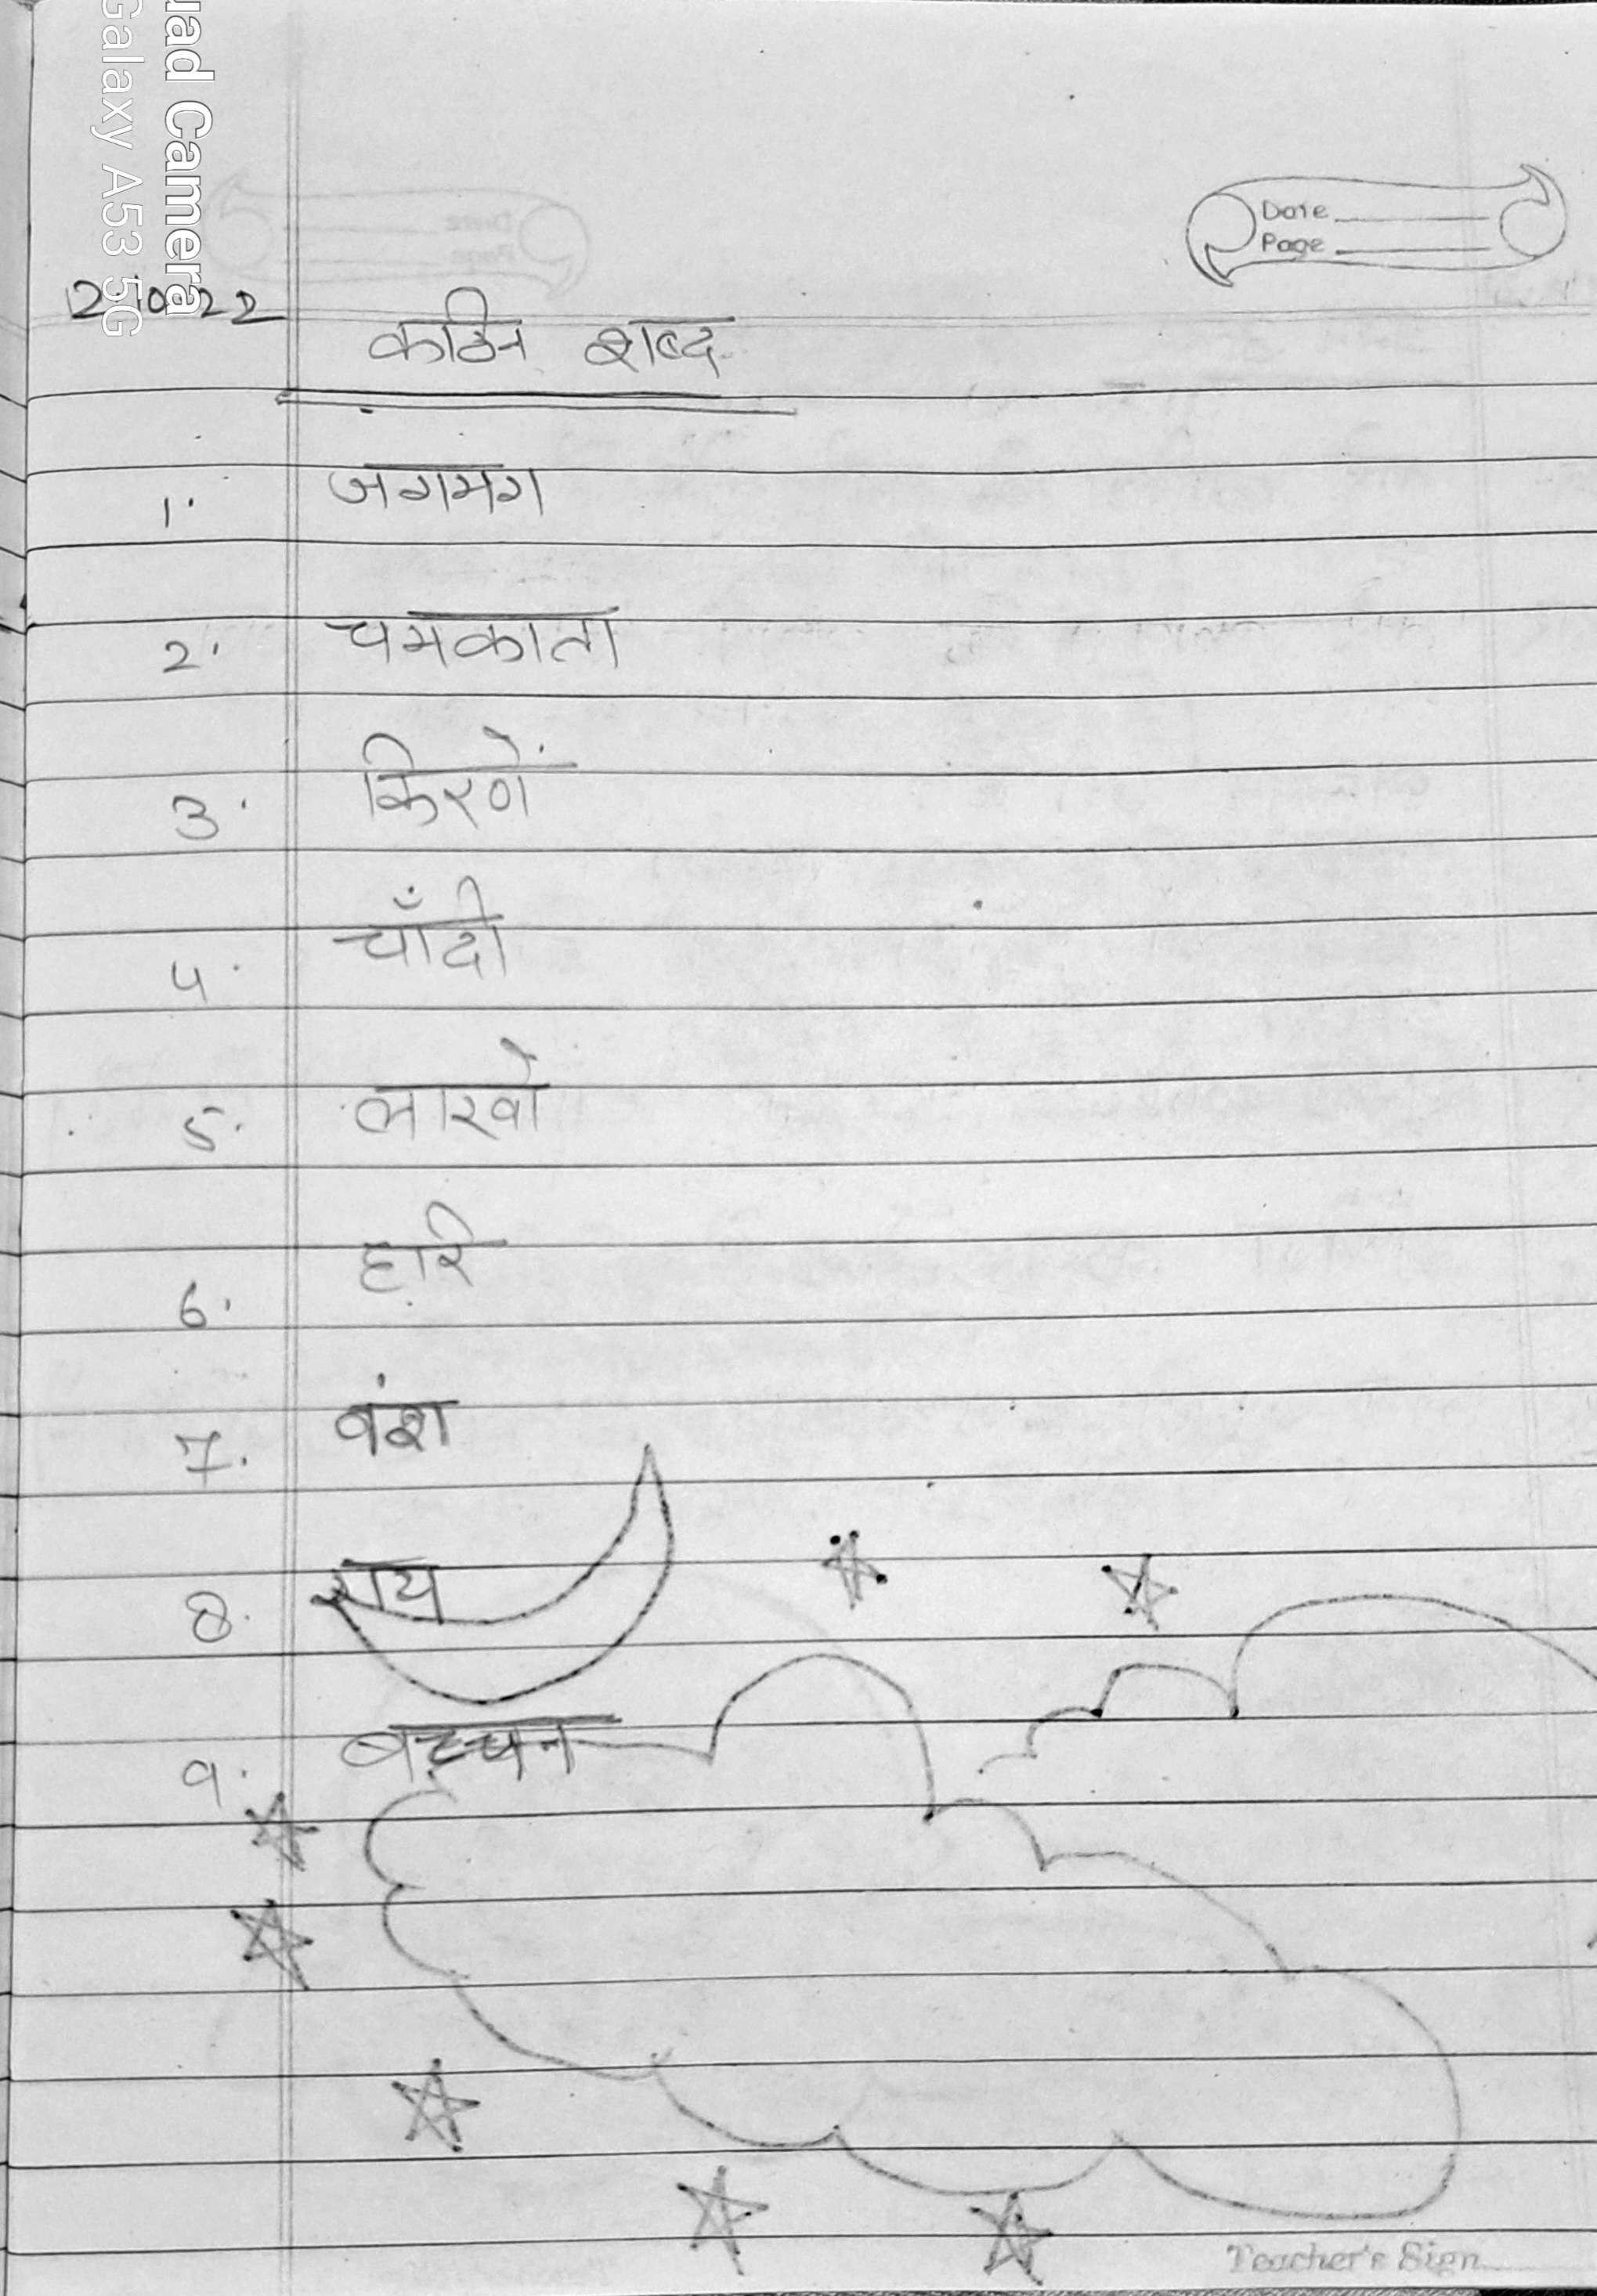 Quad Camera
Galaxy A53 5G
Date
Page
कठिन शब्द
1. जगमग
2. चमकाता
3. किरणें
4. चाँदी
5. लाखो
6. हरि
7. वंश
8. राय
9. बच्चन
Teacher's Sign